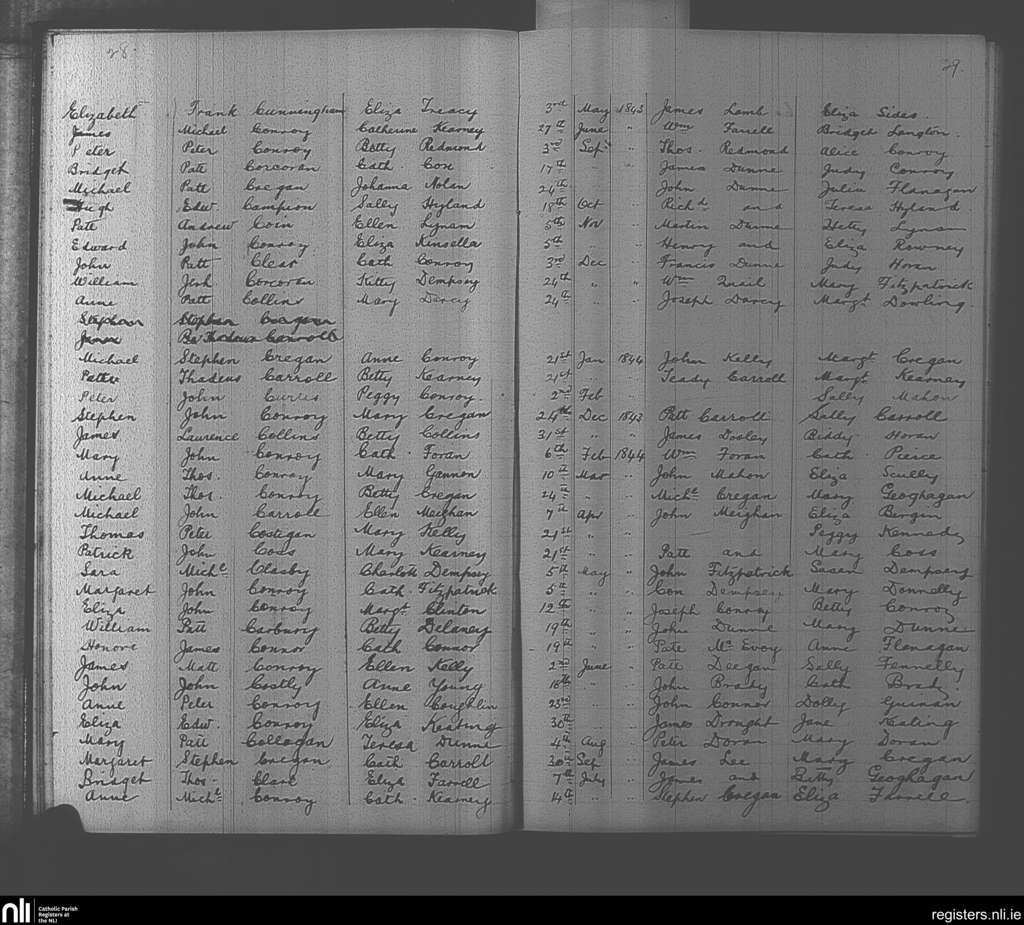 28
29
Elizabeth Frank Cunningham Eliza Treacy 3rd May 1843 James Lamb Eliza Sides.
James Michael Conroy Catherine Kearney 27th June " Wm Farrell Bridget Langton.
Peter Peter Conroy Betty Redmond 3rd Sepr " Thos. Redmond Alice Conroy
Bridget Patt Corcoran Cath. Cox 17th " " James Dunne Judy Conroy
Michael Patt Cregan Johanna Nolan 24th " " John Dunne Julia Flanagan
Hugh Edw. Campion Sally Hyland 18th Oct " Richd and Teresa Hyland
Patt Andrew Coin Ellen Lynan 5th Nov " Martin Dunne Hetty Lynan
Edward John Conroy. Eliza Kinsella 5th " " Henry and Eliza Rowney
John Patt Clear Cath Conroy 3rd Dec " Francis Dunne Judy Horan
William Jerh Corcoran Kitty Dempsey 24th " " Wm Quail Mary Fitzpatrick
Anne Patt Collins Mary Darcy 24th " " Joseph Darcy Margt. Dowling.
Stephen Stephen Cregan
Thadeus Carroll
Michael Stephen Cregan Anne Conroy 21st Jan 1844 John Kelly Margt Cregan
Thadeus Carroll Betty Kearney 21st " " Teady Carroll Margt. Kearney
Peter John Curtis Peggy Conroy. 2nd Feb " Sally Mahon
Stephen John Conroy Mary Cregan 24th Dec 1843 Patt Carroll Sally Carroll
James Laurence Collins Betty Collins 31st " " James Dooley Biddy Horan
Mary John Conroy Cath. Foran 6th Feb 1844 Wm Foran Cath Pierce
Anne Thos. Conroy Mary Gannon 10th Mar " John Mahon Eliza Scully
Michael Thos. Conroy Betty Cregan 24th " " Michl Cregan Mary Geoghagan
Michael John Carroll Ellen Meighan 7th Apr " John Meighan Eliza Bergin
Thomas Peter Costigan Mary Kelly 21st " " — Peggy Kennedy
Patrick John Coss Mary Kearney 21st " " Patt and Mary Coss
Sara Michl Clasby Charlott Dempsey 5th May " John Fitzpatrick Susan Dempsey
Margaret John Conroy Cath. Fitzpatrick 5th " " Con Dempsey Mary Donnelly
Eliza John Conroy Margt. Clinton 12th " " Joseph Conroy Betty Conroy
William Patt Carbury Betty Delaney 19th " " John Dunne Mary Dunne
Honore James Connor Cath Connor 19th " " Pate Mc Evoy Anne Flanagan
James Matt Conroy Ellen Kelly 2nd June " Patt Deegan Sally Fennelly
John John Costly Anne Young 16th " " John Brady Cath Brady.
Anne Peter Conroy Ellen Coughlin 23rd " " John Connor Dolly
Eliza Edw. Conroy Eliza Keating 30th " " James Drought Jane Kating
Mary Patt Collogan Teresa Dunne 4th Aug " Peter Doran Mary Doran
Margaret Stephen Cregan Cath Carroll 30th Sep " James Lee Mary Cregan
Bridget Thos. Clare Eliza Farrell 7th July " James and Betty Geoghagan
Anne Michl Conroy Cath. Kearney 14th " " Stephen Cregan Eliza Farrell.
nli
Catholic Parish
Registers at
the NLI
registers.nli.ie